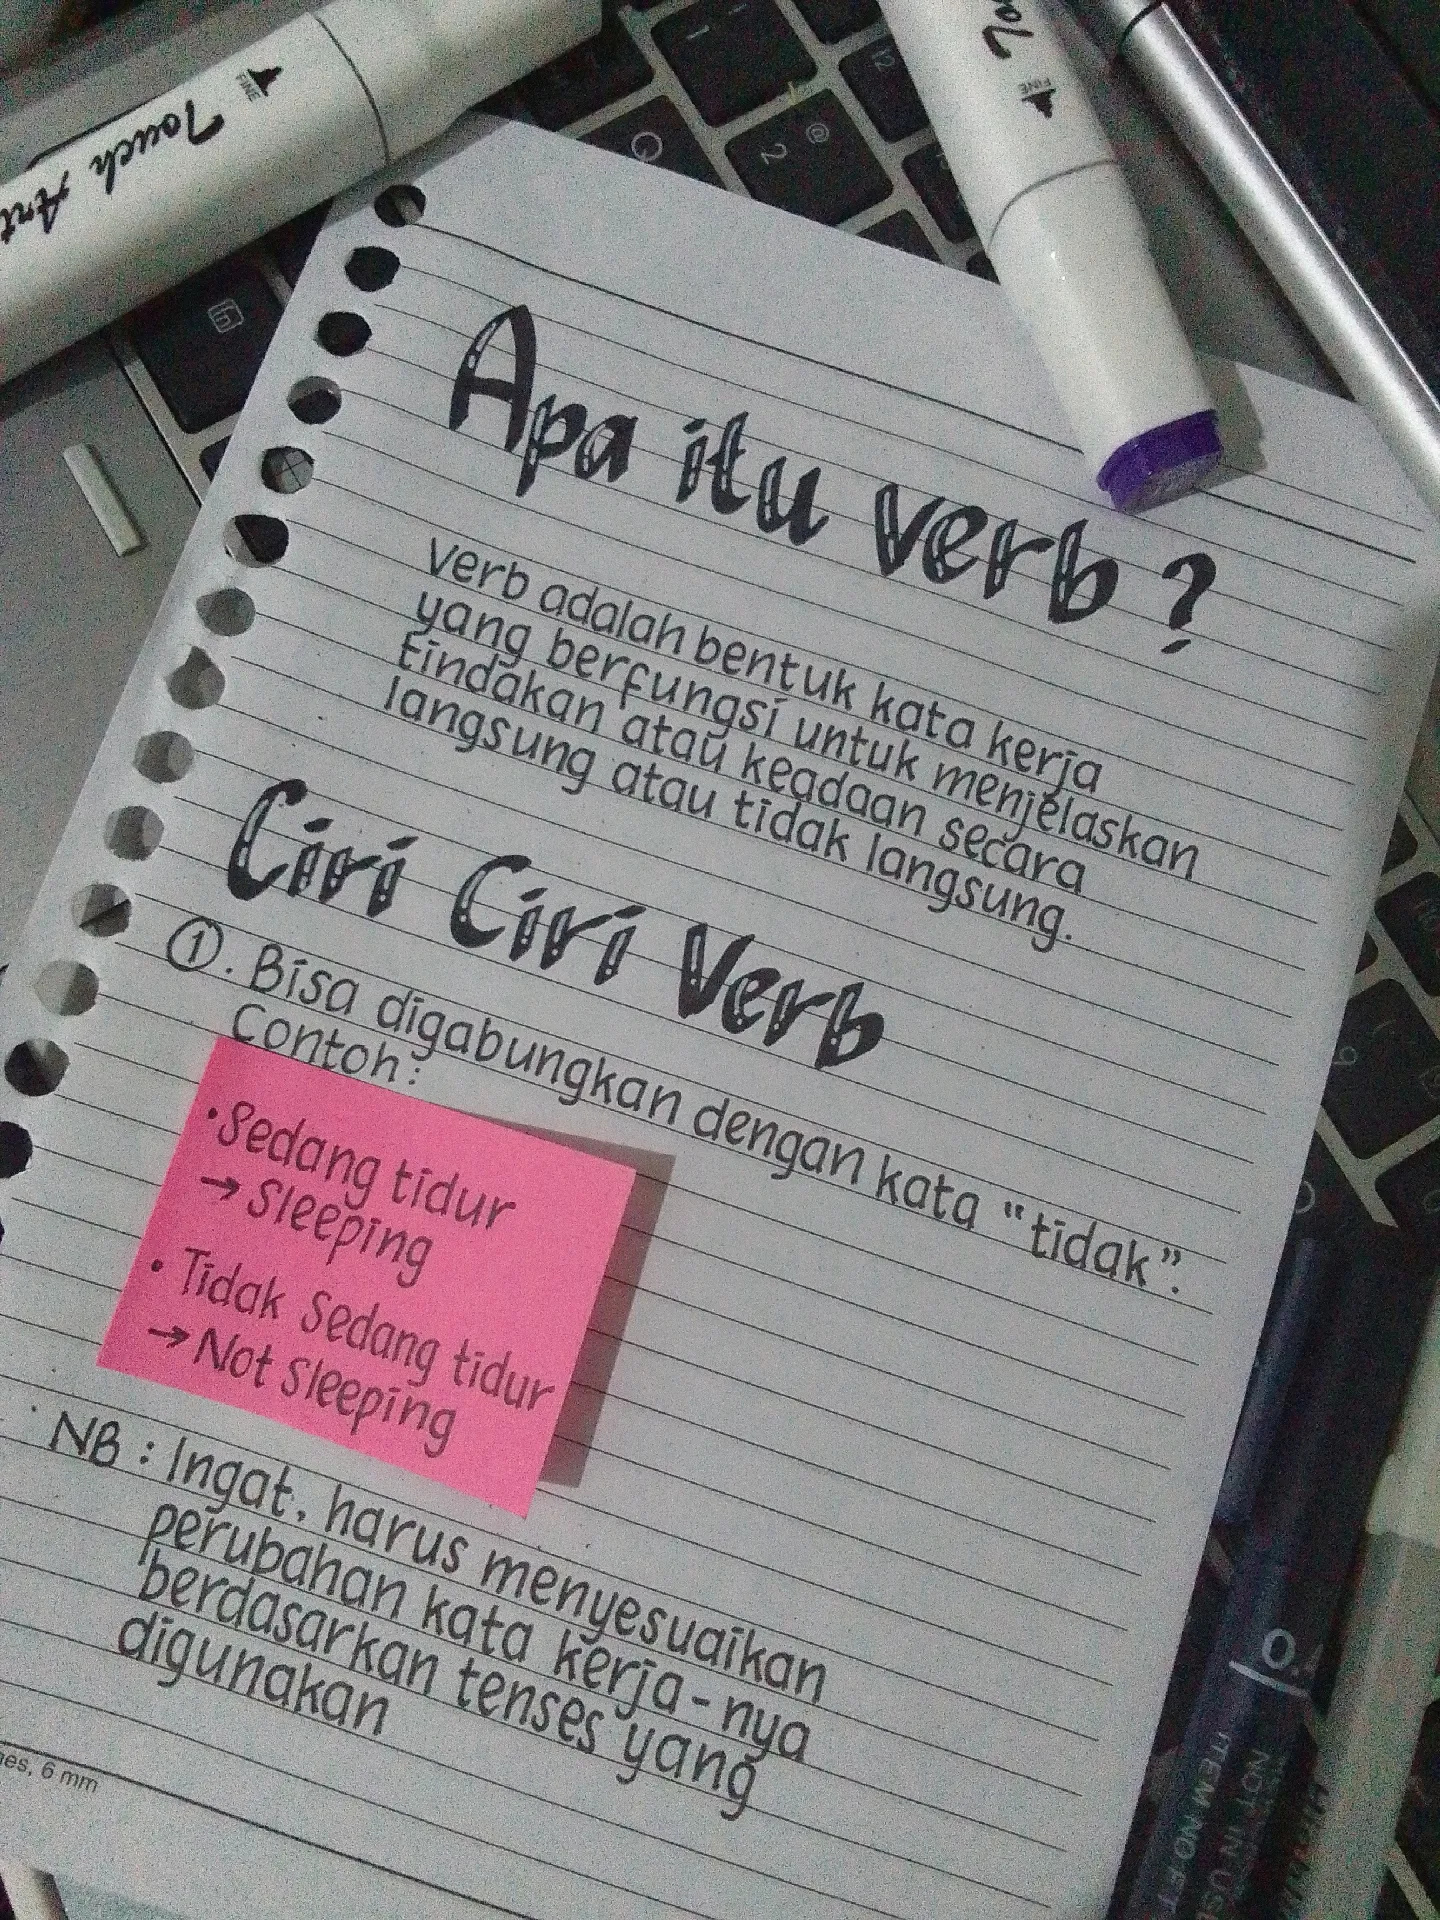 Touch Art
FINE
FINE
fn
1
@
2
Apa itu verb ?
verb adalah bentuk kata kerja
yang berfungsi untuk menjelaskan
tindakan atau keadaan secara
langsung atau tidak langsung.
Ciri Ciri Verb
①. Bisa digabungkan dengan kata "tidak".
Contoh :
• Sedang tidur
→ Sleeping
• Tidak Sedang tidur
→ Not Sleeping
NB : Ingat, harus menyesuaikan
perubahan kata kerja-nya
berdasarkan tenses yang
digunakan
6 mm